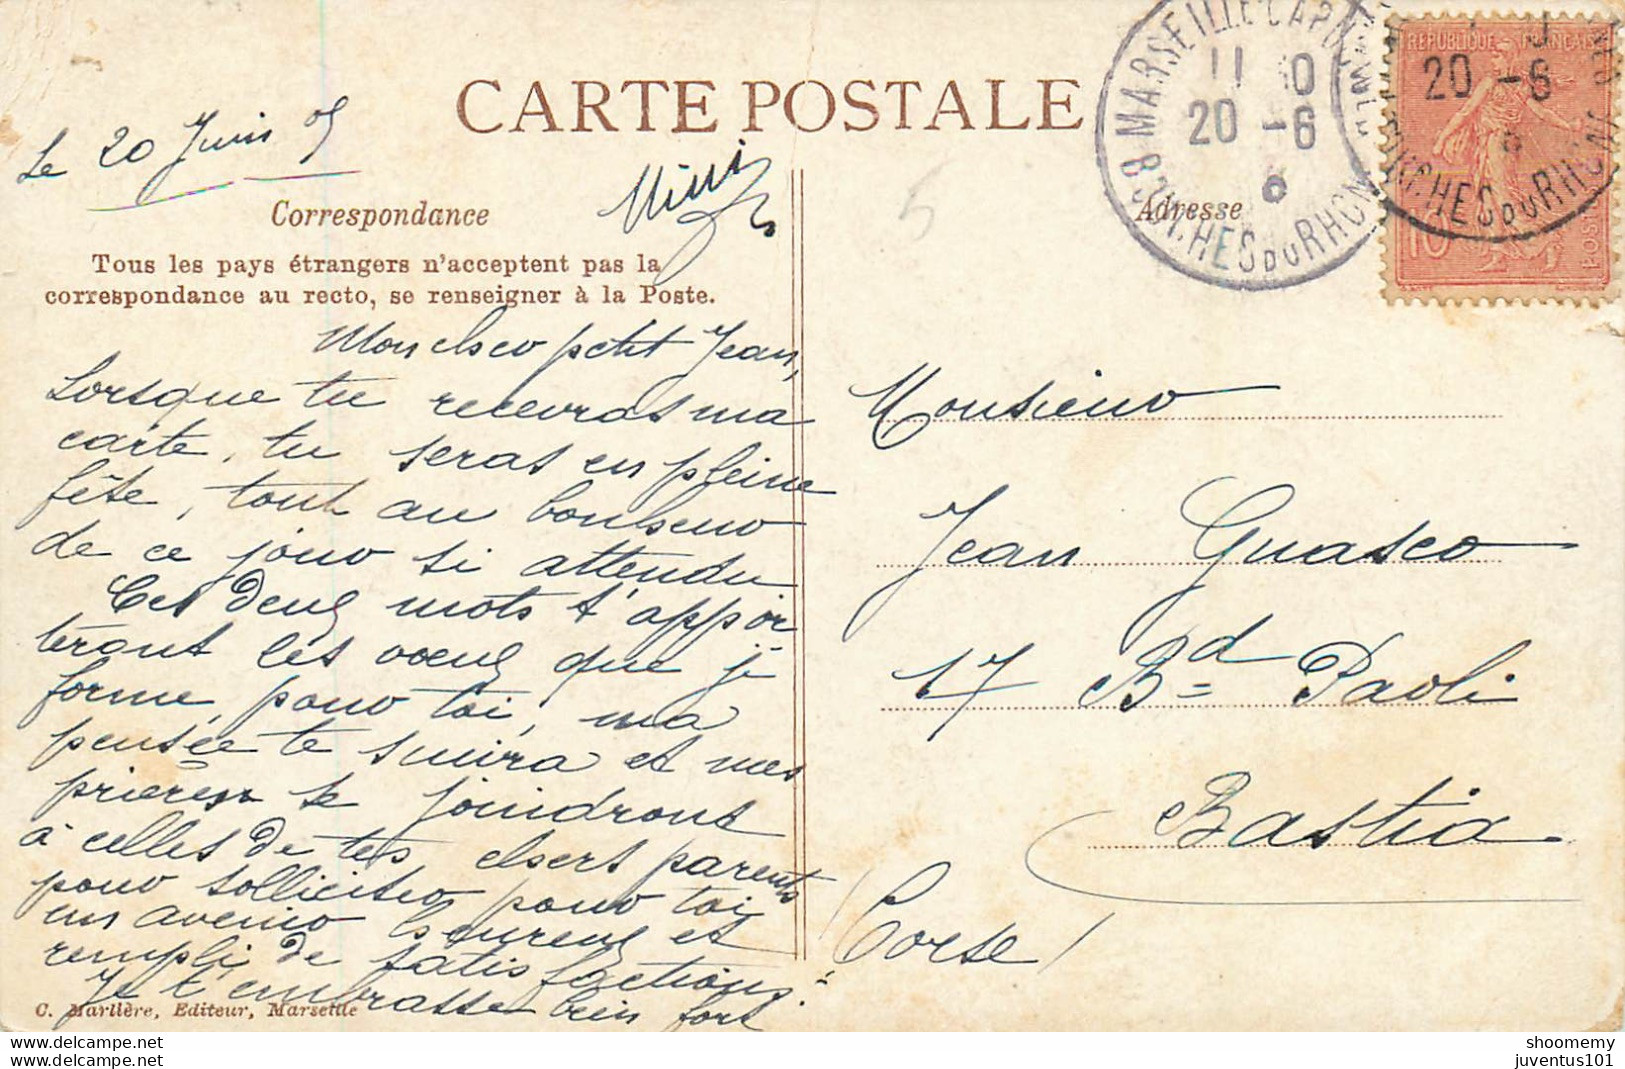 CARTE POSTALE
Le 20 Juin 05
Mimi
Correspondance
Tous les pays étrangers n'acceptent pas la
correspondance au recto, se renseigner à la Poste.
Mon cher petit Jean,
Lorsque tu recevras ma
carte, tu seras en pleine
fête, tout au bonheur
de ce jour si attendu
Ces deux mots t'appor
teront les vœux que je
forme pour toi, ma
pensée te suivra et mes
prières se joindront
à celles de tes chers parents
pour solliciter pour toi
un avenir heureux et
rempli de satisfactions.
Je t'embrasse bien fort
C. Marlière, Editeur, Marseille
MARSEILLE
11 10
20 -6
BCHES DU RHONE
REPUBLIQUE FRANÇAISE
20 -6
BOUCHES DU RHONE
10
POSTES
Adresse
5
Monsieur
Jean Guasco
17 Bd Paoli
Bastia
(Corse)
delcampe.net
delcampe.net
shoomemy
juventus101